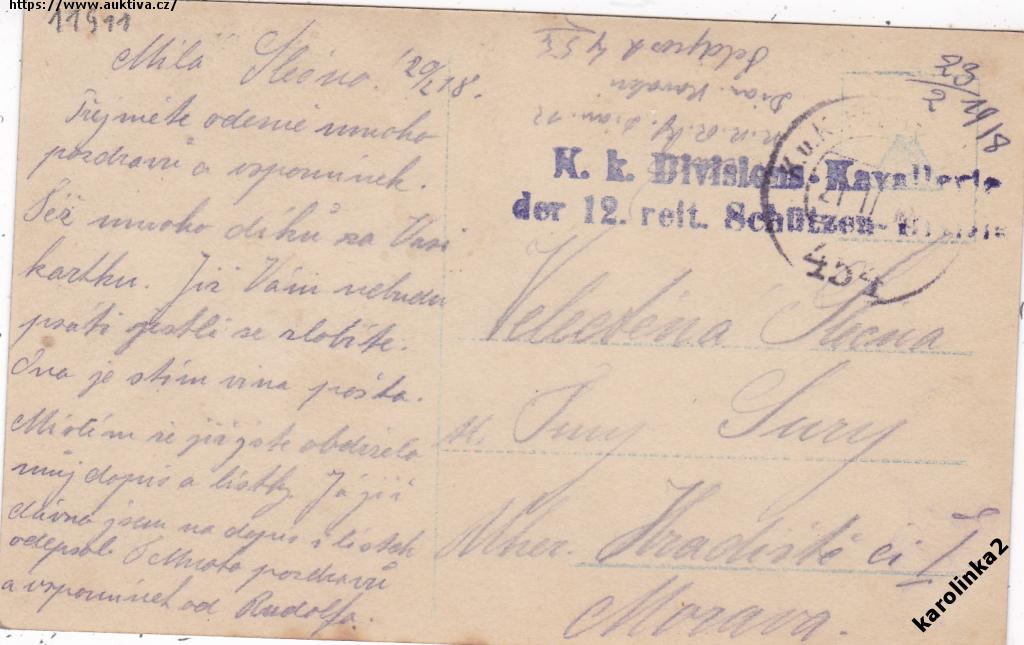 https://www.auktiva.cz/
11911
Milá Slečno. 20/2 18.
Přijměte odemě mnoho
pozdravů a vzpomínek.
Též mnoho díků za Vaši
kartku. Již Vám nebudu
psáti jestli se zlobíte.
Ona je stím vina pošta.
Myslím že již jste obdržela
můj dopis a lístky. Já již
dávno jsem na dopis i lístek
odepsal. S Mnoha pozdravů
a vzpomínek od Rudolfa.
Feldpost 454
Div. Kavalen
23/2 1918
K. k. Divisions-Kavallerie
der 12. reit. Schützen-
K.u.K.
21 II
454
Velectěná Slečna
sl. Surý
Uher. Hradiště či I
Morava.
karolinka2